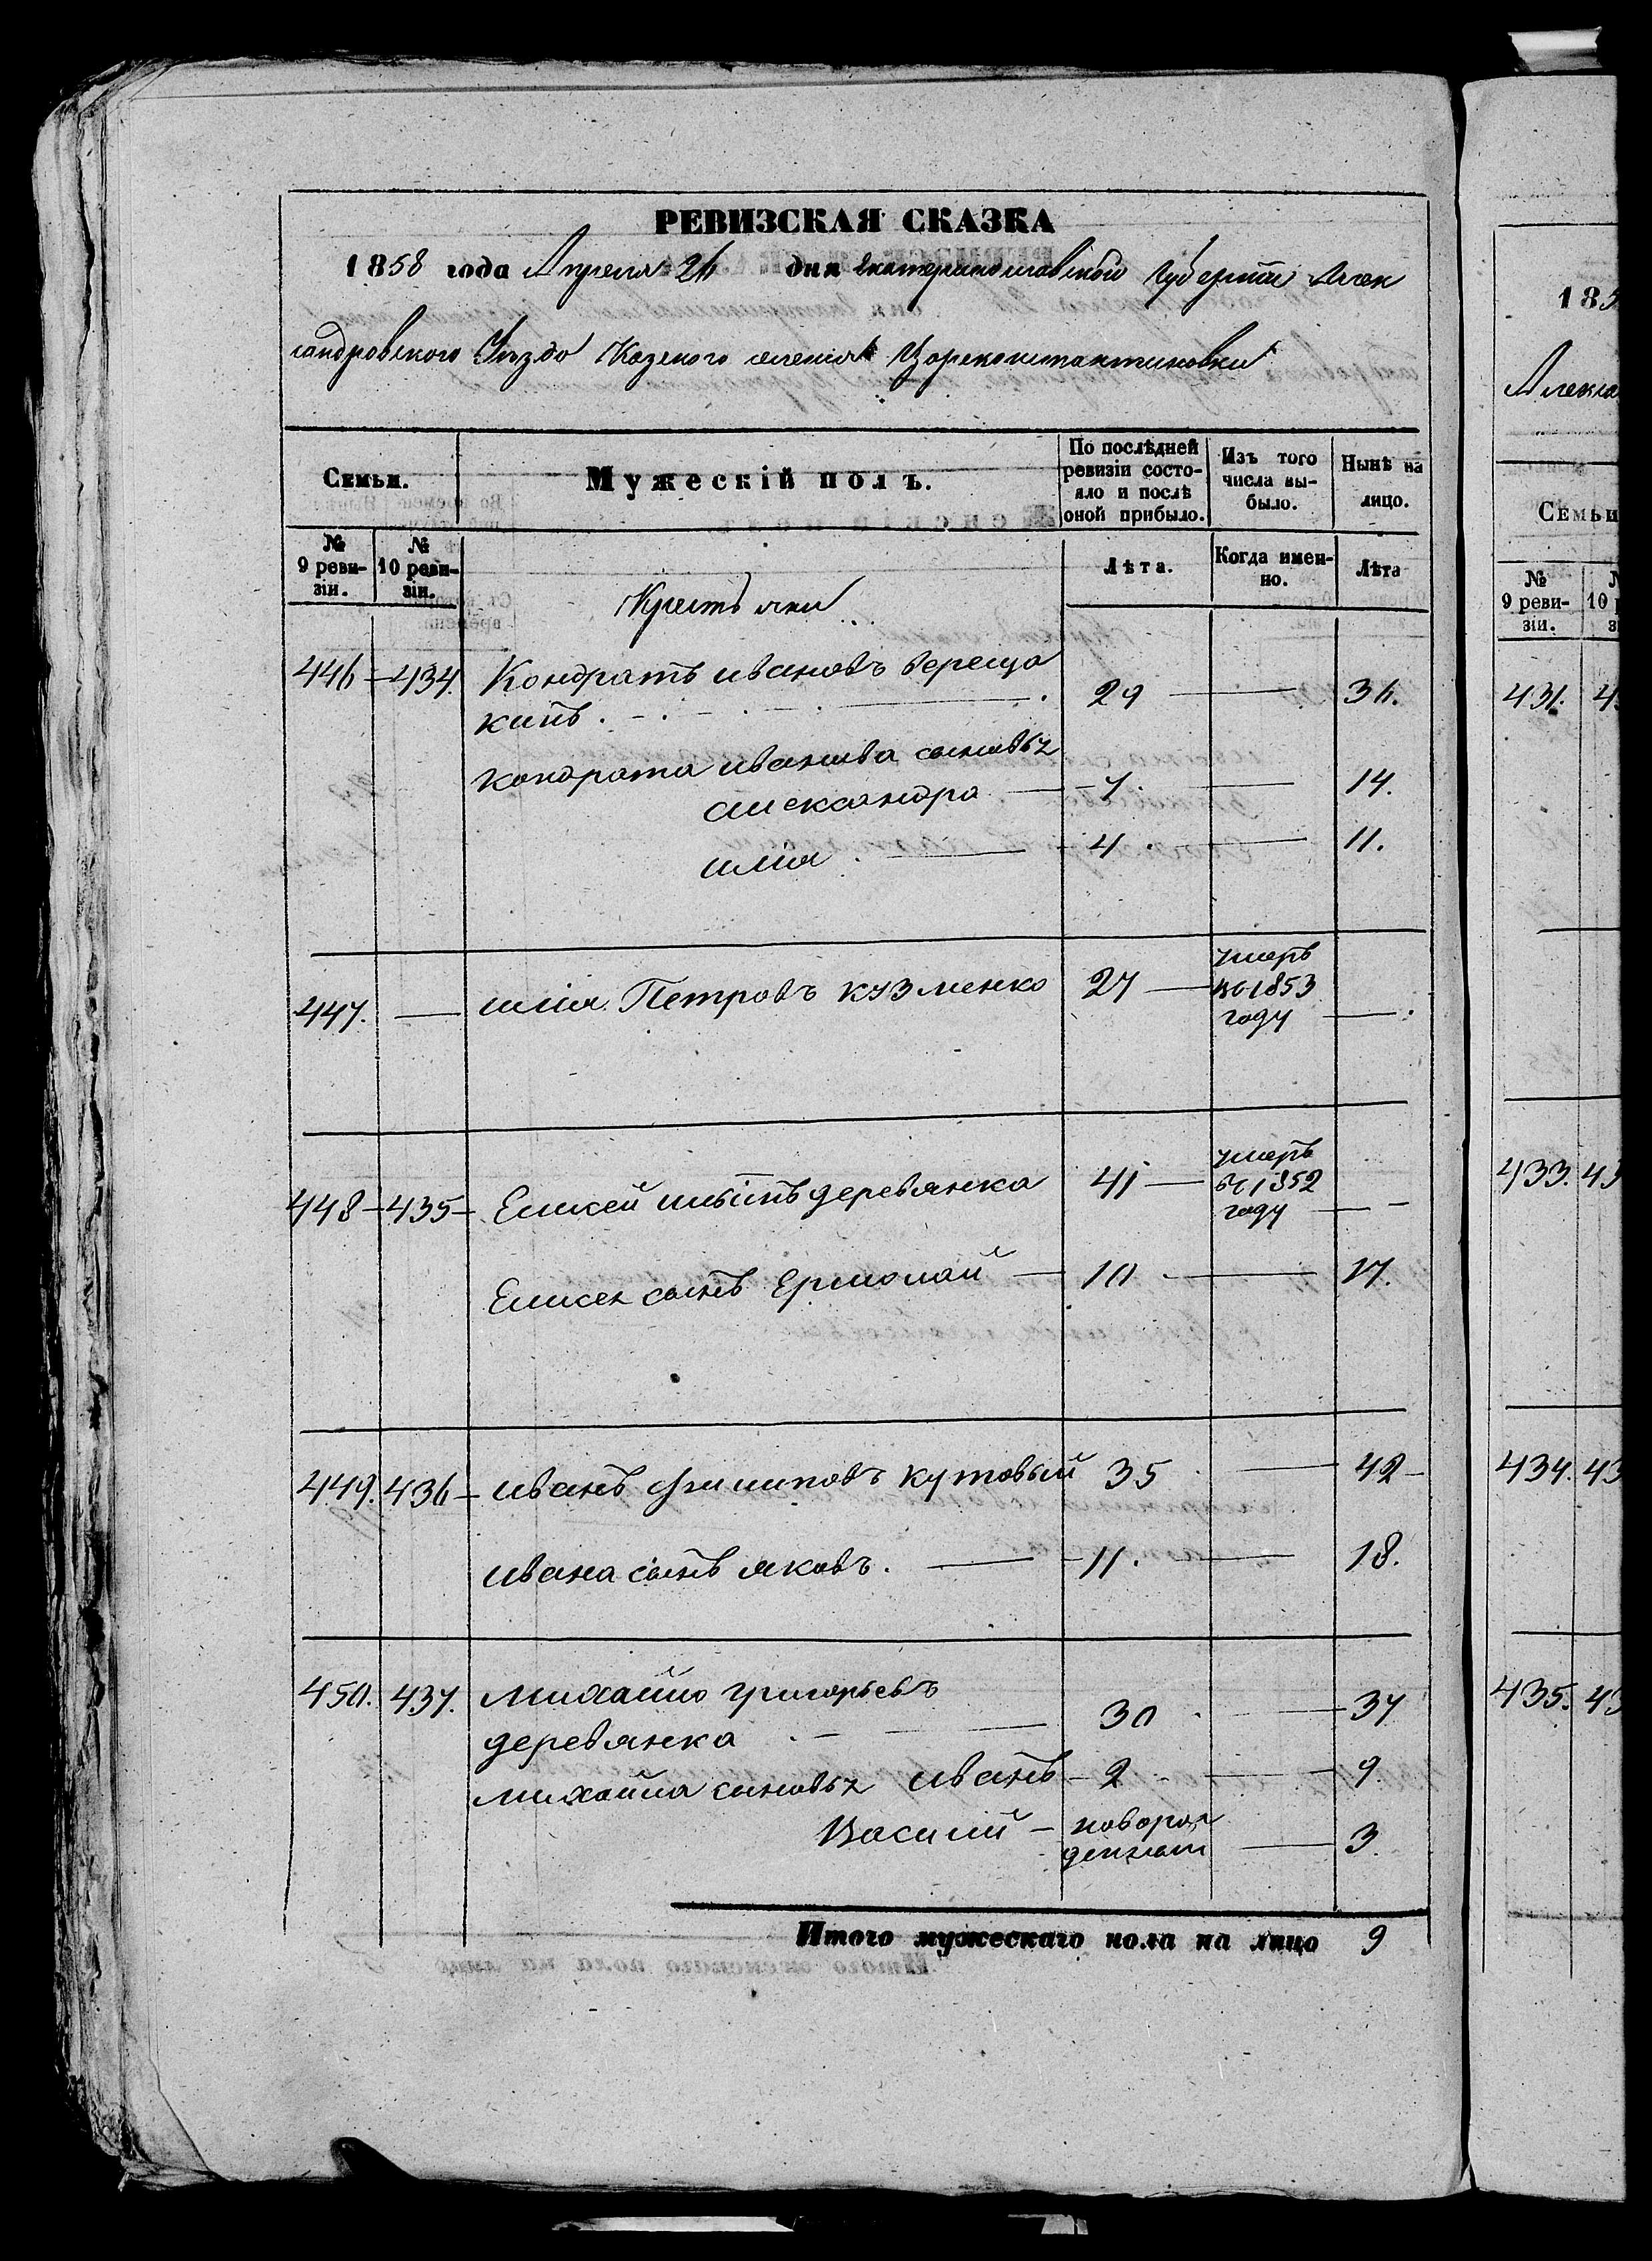 РЕВИЗСКАЯ СКАЗКА
1858 года Апреля 26 дня Екатеринославской Губернiи Алек
сандровского Уѣзда Казеного селенiя Цареконстантиновки
Семьи.
Мужескiй полъ.
По послѣдней ревизiи состо-
яло и послѣ
оной прибыло.
Изъ того
числа вы-
было.
Нынѣ на
лицо.
№
9 реви-
зiи.
№
10 реви-
зiи.
Лѣта.
Когда имен-
но.
Лѣта
Крестьяне
446 - 434. Кондратъ ивановъ вереща
кинъ. 29 — 36.
Кондрата иванова сыновья
александра — 7. — 14.
илiя. — 4. — 11.
447. — илiя Петровъ кузменко 27 — умеръ
въ 1853
году — .
448 - 435 - Елисей ильинъ деревянка 41 — умеръ
въ 1852
году — -
Елисея сынъ Ермолай — 10. — 17.
449. 436 - иванъ филиповъ кутовый 35 — 42 -
ивана сынъ яковъ. — 11. — 18.
450. 437. михайло григорьевъ
деревянка — 30 — 37
михайла сыновья иванъ - 2 — 9.
Василий - новорож
денный — 3.
Итого мужескаго пола на лицо 9
185
Алекса
Семьи
№
9 реви-
зiи.
10
431. 4
433. 43
434. 43
435. 43